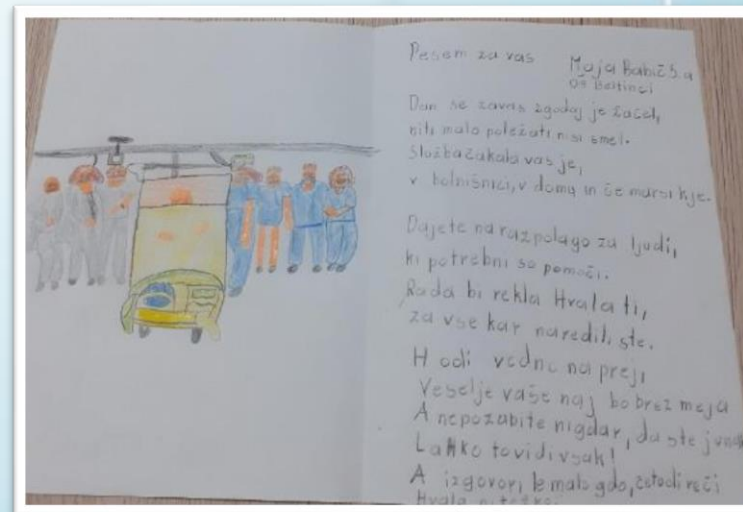 Pesem za vas
Maja Babič 5.a
OŠ Beltinci
Dan se zavas zgodaj je začel,
niti malo poležati nisi smel.
Služba čakala vas je,
v bolnišnici, v domu in še marsi kje.
Dajete na razpolago za ljudi,
ki potrebni so pomoči.
Rada bi rekla Hvala ti,
za vse kar naredili ste.
Hodi vedno naprej,
Veselje vaše naj bo brez meja
A nepozabite nigdar, da ste junak
Lahko to vidi vsak!
A izgovori le malo gdo, četudi reči
Hvala ni težko